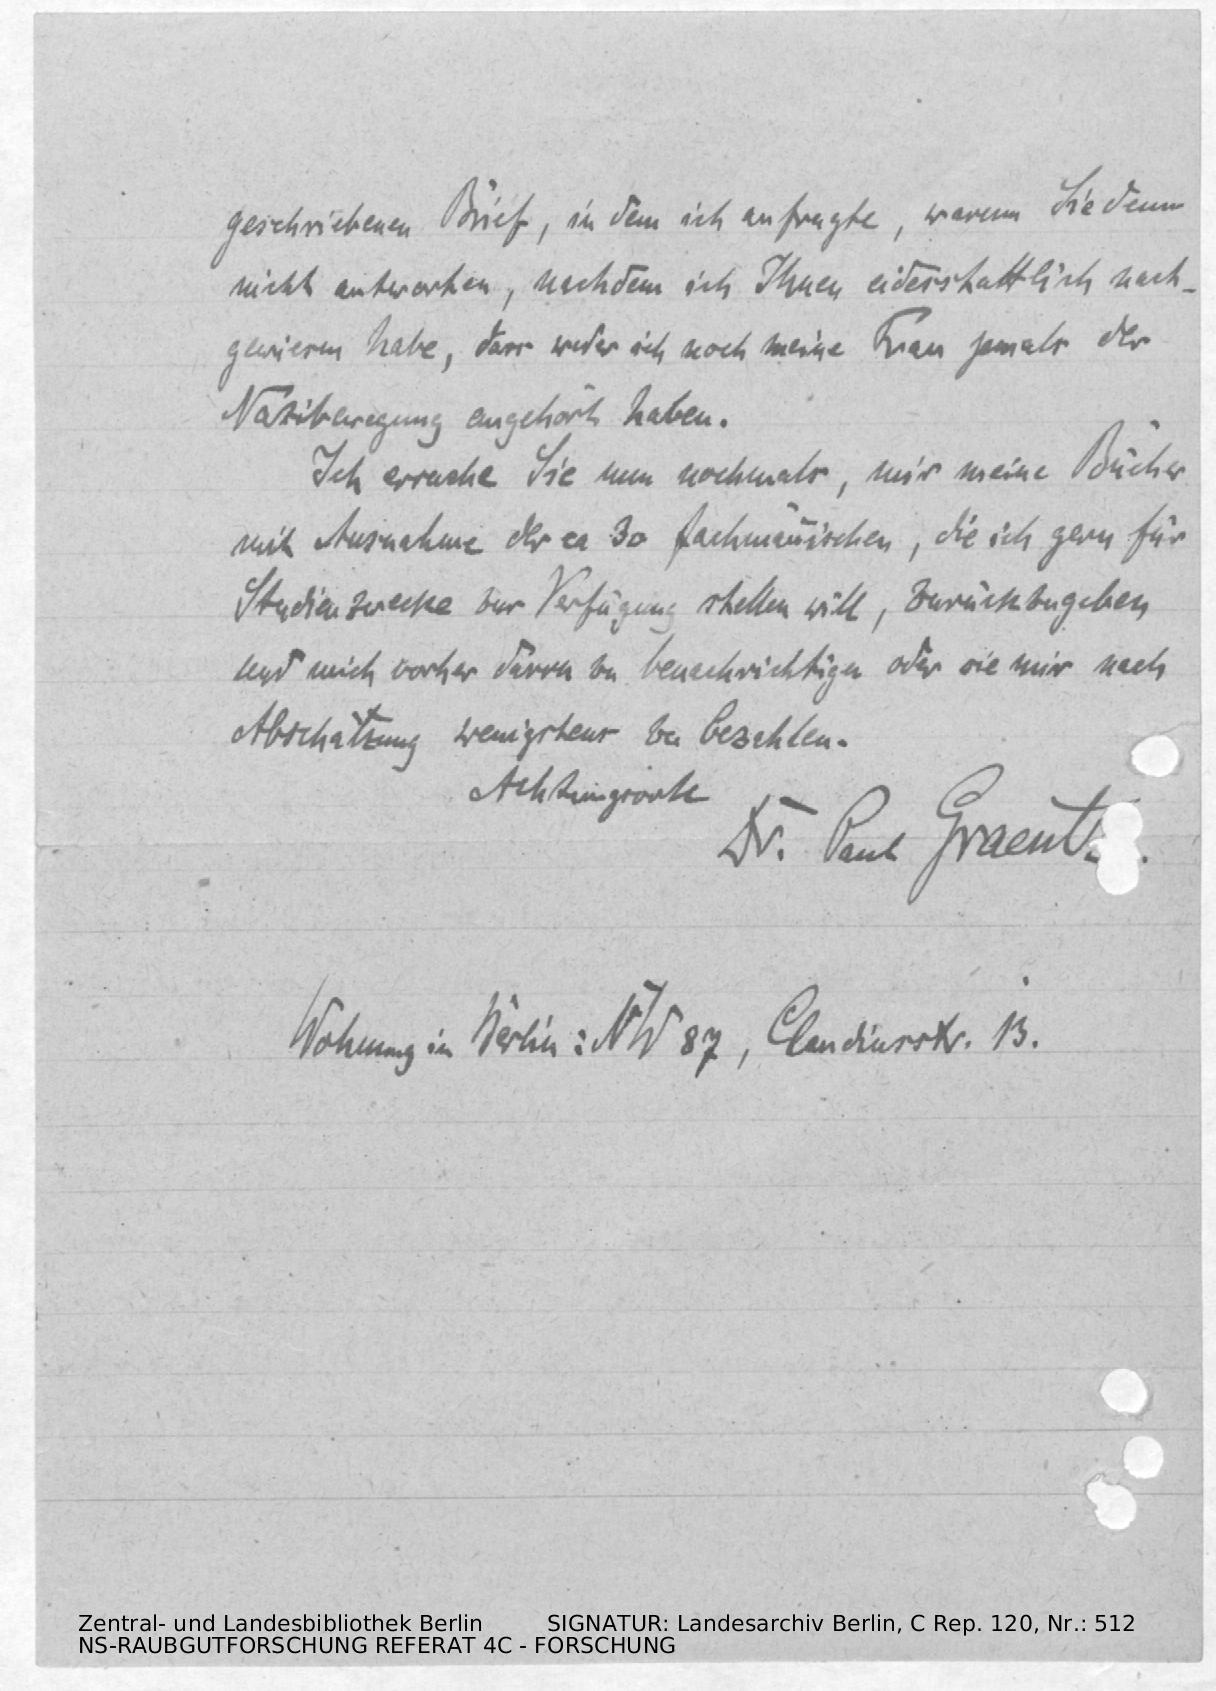 geschriebenen Brief, in dem ich anfragte, warum Sie denn
nicht antworten, nachdem ich Ihnen eidesstattlich nach-
gewiesen habe, dass weder ich noch meine Frau jemals der
Nazibewegung angehört haben.
Ich ersuche Sie nun nochmals, mir meine Bücher
mit Ausnahme der ca 30 fachmännischen, die ich gern für
Studienzwecke zur Verfügung stellen will, zurückzugeben
und mich vorher davon zu benachrichtigen oder sie mir nach
Abschätzung wenigstens zu bezahlen.
Achtungsvoll
Dr. Paul
Wohnung in Berlin: NW 87, Claudiusstr. 13.
Zentral- und Landesbibliothek Berlin SIGNATUR: Landesarchiv Berlin, C Rep. 120, Nr.: 512
NS-RAUBGUTFORSCHUNG REFERAT 4C - FORSCHUNG